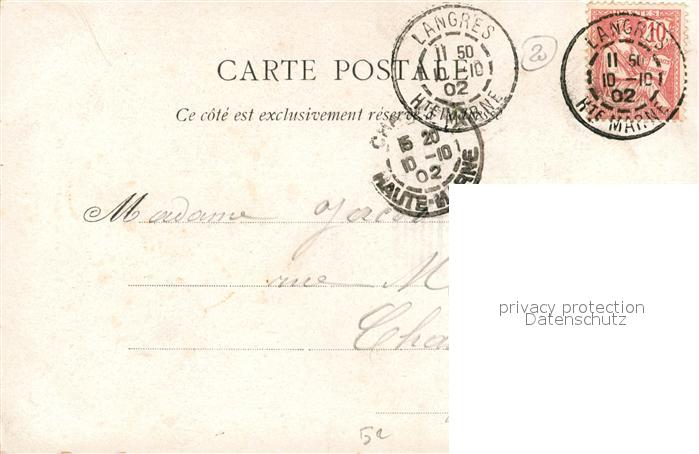 CARTE POSTALE
Ce côté est exclusivement réservé à
LANGRES
11 50
10 -10
02
HTE MARNE
LANGRES
11 50
10 -10
02
HTE MARNE
10
20
10 -10
02
HAUTE-MARNE
Madame
rue M
Cha
52
privacy protection
Datenschutz